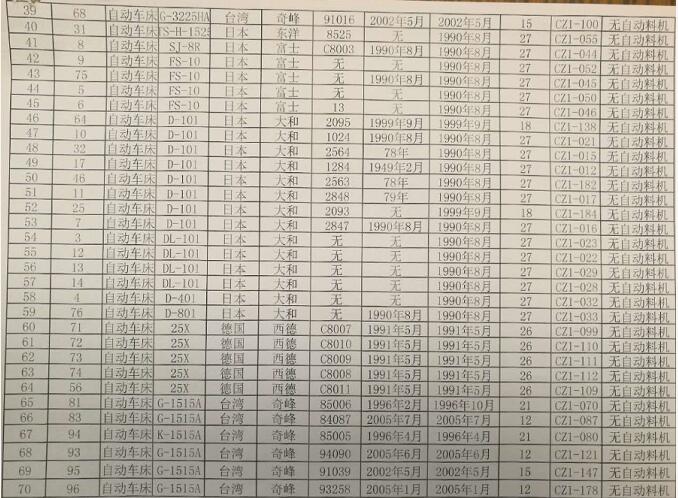 39 68 自动车床 G-3225HA 台湾 奇峰 91016 2002年5月 2002年5月 15 CZ1-100 无自动料机
40 31 自动车床 TS-H-1525 日本 东洋 8525 无 1990年8月 27 CZ1-055 无自动料机
41 8 自动车床 SJ-8R 日本 富士 C8003 1990年8月 1990年8月 27 CZ1-044 无自动料机
42 9 自动车床 FS-10 日本 富士 无 无 1990年8月 27 CZ1-052 无自动料机
43 75 自动车床 FS-10 日本 富士 无 1990年8月 1990年8月 27 CZ1-045 无自动料机
44 5 自动车床 FS-10 日本 富士 无 无 1990年8月 27 CZ1-050 无自动料机
45 6 自动车床 FS-10 日本 富士 13 无 1990年8月 27 CZ1-046 无自动料机
46 64 自动车床 D-101 日本 大和 2095 1999年9月 1999年9月 18 CZ1-138 无自动料机
47 10 自动车床 D-101 日本 大和 1024 1990年8月 1990年8月 27 CZ1-021 无自动料机
48 32 自动车床 D-101 日本 大和 2564 78年 1990年8月 27 CZ1-015 无自动料机
49 17 自动车床 D-101 日本 大和 1284 1949年2月 1990年8月 27 CZ1-012 无自动料机
50 46 自动车床 D-101 日本 大和 2563 78年 1990年8月 27 CZ1-182 无自动料机
51 11 自动车床 D-101 日本 大和 2848 79年 1990年8月 27 CZ1-017 无自动料机
52 25 自动车床 D-101 日本 大和 2093 无 1999年9月 18 CZ1-184 无自动料机
53 7 自动车床 D-101 日本 大和 2847 1990年8月 1990年8月 27 CZ1-016 无自动料机
54 3 自动车床 DL-101 日本 大和 无 无 1990年8月 27 CZ1-023 无自动料机
55 12 自动车床 DL-101 日本 大和 无 无 1990年8月 27 CZ1-022 无自动料机
56 13 自动车床 DL-101 日本 大和 无 无 1990年8月 27 CZ1-029 无自动料机
57 14 自动车床 DL-101 日本 大和 无 无 1990年8月 27 CZ1-028 无自动料机
58 4 自动车床 D-401 日本 大和 无 无 1990年8月 27 CZ1-032 无自动料机
59 76 自动车床 D-801 日本 大和 无 1990年8月 1990年8月 27 CZ1-033 无自动料机
60 71 自动车床 25X 德国 西德 C8007 1991年5月 1991年5月 26 CZ1-099 无自动料机
61 72 自动车床 25X 德国 西德 C8010 1991年5月 1991年5月 26 CZ1-110 无自动料机
62 73 自动车床 25X 德国 西德 C8009 1991年5月 1991年5月 26 CZ1-111 无自动料机
63 74 自动车床 25X 德国 西德 C8008 1991年5月 1991年5月 26 CZ1-112 无自动料机
64 56 自动车床 25X 德国 西德 C8011 1991年5月 1991年5月 26 CZ1-109 无自动料机
65 81 自动车床 G-1515A 台湾 奇峰 85006 1996年2月 1996年10月 21 CZ1-070 无自动料机
66 83 自动车床 G-1515A 台湾 奇峰 84087 2005年7月 2005年7月 12 CZ1-087 无自动料机
67 94 自动车床 K-1515A 台湾 奇峰 85005 1996年4月 1996年4月 21 CZ1-080 无自动料机
68 93 自动车床 G-1515A 台湾 奇峰 94090 2005年6月 2005年6月 12 CZ1-121 无自动料机
69 95 自动车床 G-1515A 台湾 奇峰 91039 2002年5月 2002年5月 15 CZ1-147 无自动料机
70 96 自动车床 G-1515A 台湾 奇峰 93258 2005年1月 2005年1月 12 CZ1-178 无自动料机